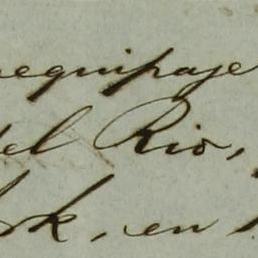 equipaje
del Rio,
rk, en